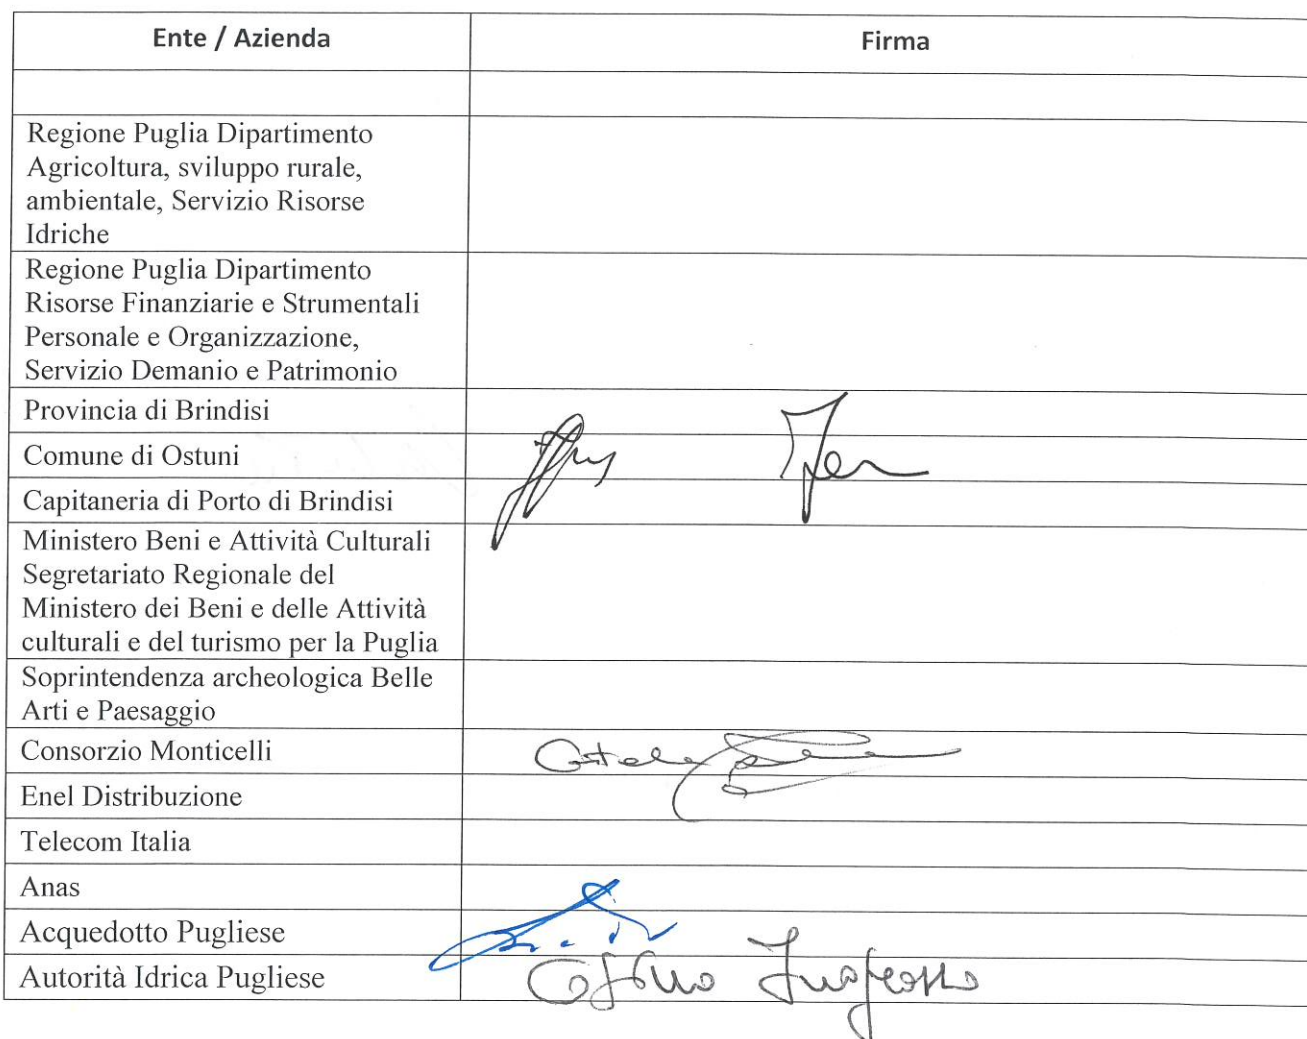 Ente / Azienda
Firma
Regione Puglia Dipartimento
Agricoltura, sviluppo rurale,
ambientale, Servizio Risorse
Idriche
Regione Puglia Dipartimento
Risorse Finanziarie e Strumentali
Personale e Organizzazione,
Servizio Demanio e Patrimonio
Provincia di Brindisi
Comune di Ostuni
Capitaneria di Porto di Brindisi
Ministero Beni e Attività Culturali
Segretariato Regionale del
Ministero dei Beni e delle Attività
culturali e del turismo per la Puglia
Soprintendenza archeologica Belle
Arti e Paesaggio
Consorzio Monticelli
Enel Distribuzione
Telecom Italia
Anas
Acquedotto Pugliese
Autorità Idrica Pugliese